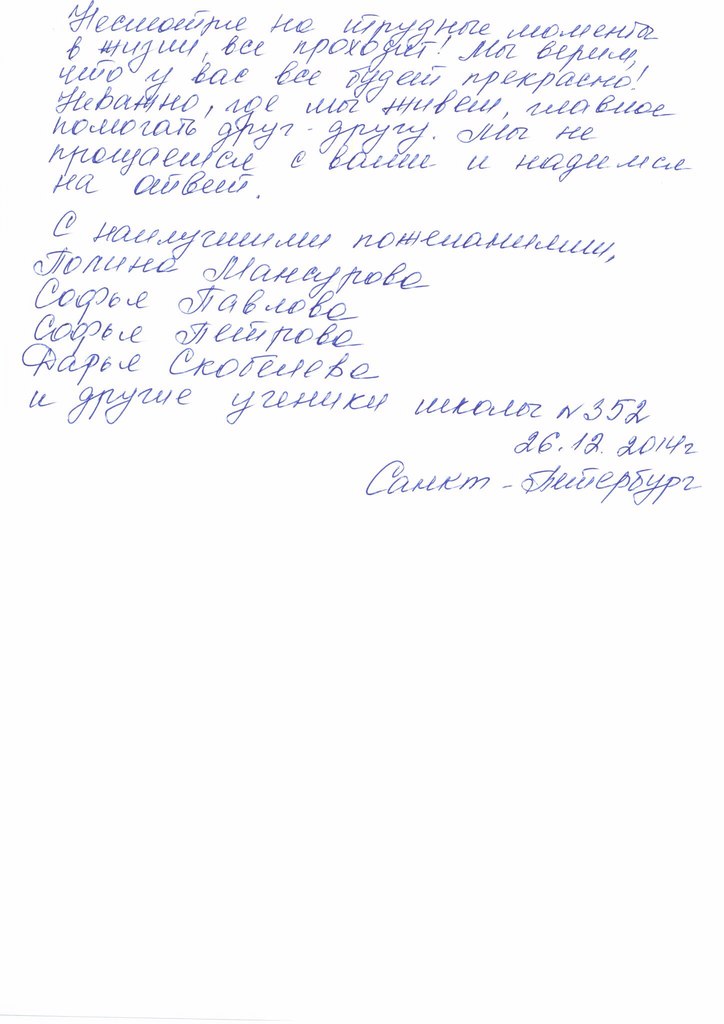 Несмотря на трудные моменты
в жизни, все проходит! Мы верим,
что у вас все будет прекрасно!
Неважно, где мы живем, главное
помогать друг-другу. Мы не
прощаемся с вами и надимся
на ответ.
С наилучшими пожеланиями,
Полина Мансурова
Софья Павлова
Софья Петрова
Дарья Скобелева
и другие ученики школы №352
26.12.2014г
Санкт-Петербург